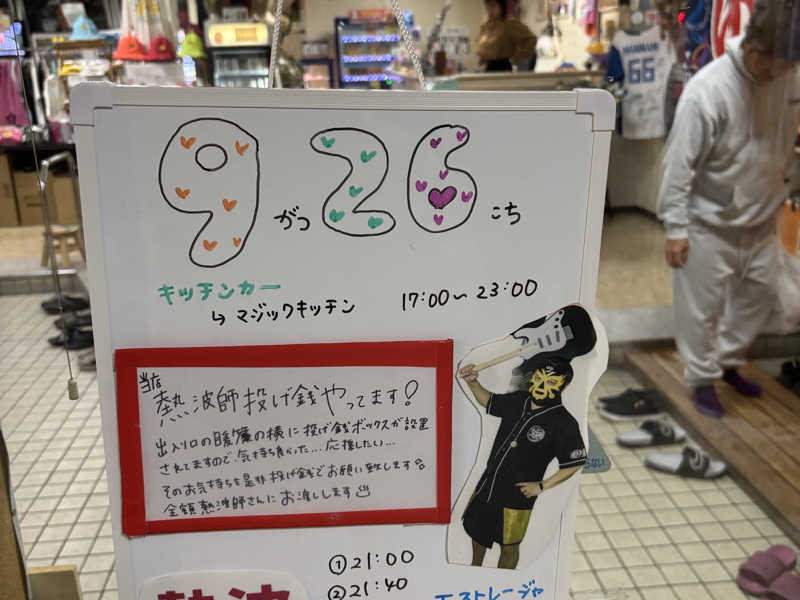 9がつ26こち
キッチンカー
↳マジックキッチン 17:00〜23:00
当店
熱波師投げ銭やってます!
出入り口の暖簾の横に投げ銭ボックスが設置
されてますので、気持ち良かった…応援したい…
そのお気持ちを是非投げ銭でお願い致します
全額熱波師さんにお渡しします
①21:00
②21:40
熱波
エストレージャ
66